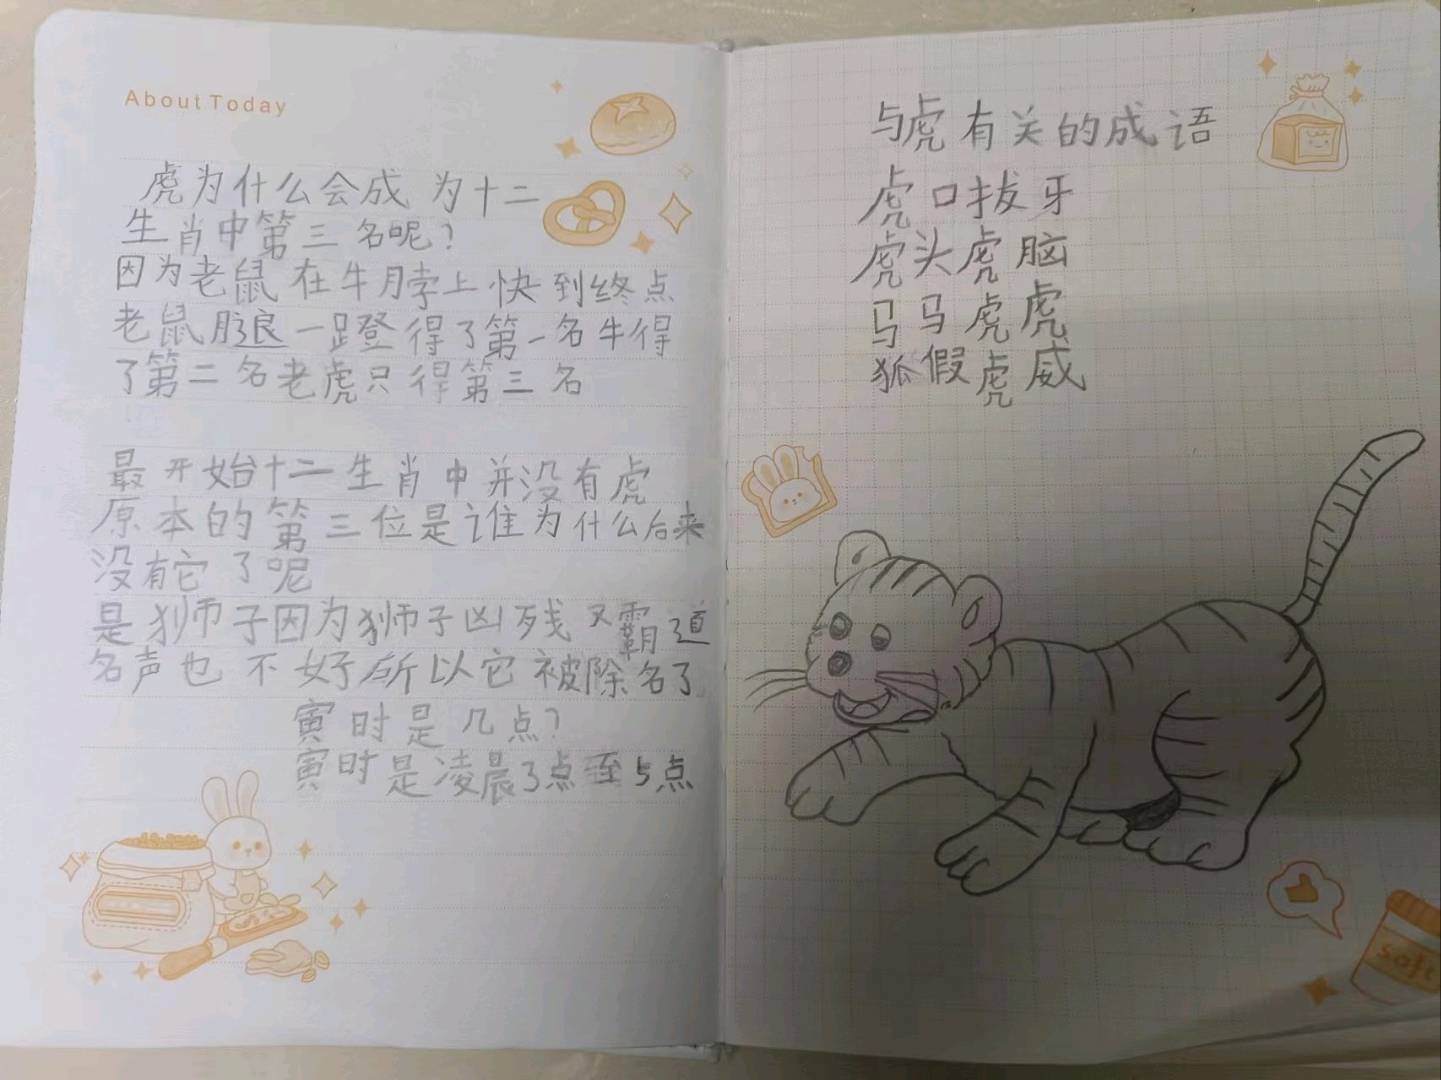 About Today
虎为什么会成为十二
生肖中第三名呢?
因为老鼠在牛脖上快到终点
老鼠 一蹬得了第一名牛得
了第二名老虎只得第三名
最开始十二生肖中并没有虎
原本的第三位是谁为什么后来
没有它了呢
是狮子因为狮子凶残又霸道
名声也不好所以它被除名了
寅时是几点?
寅时是凌晨3点至5点
与虎有关的成语
虎口拔牙
虎头虎脑
马马虎虎
狐假虎威
soft